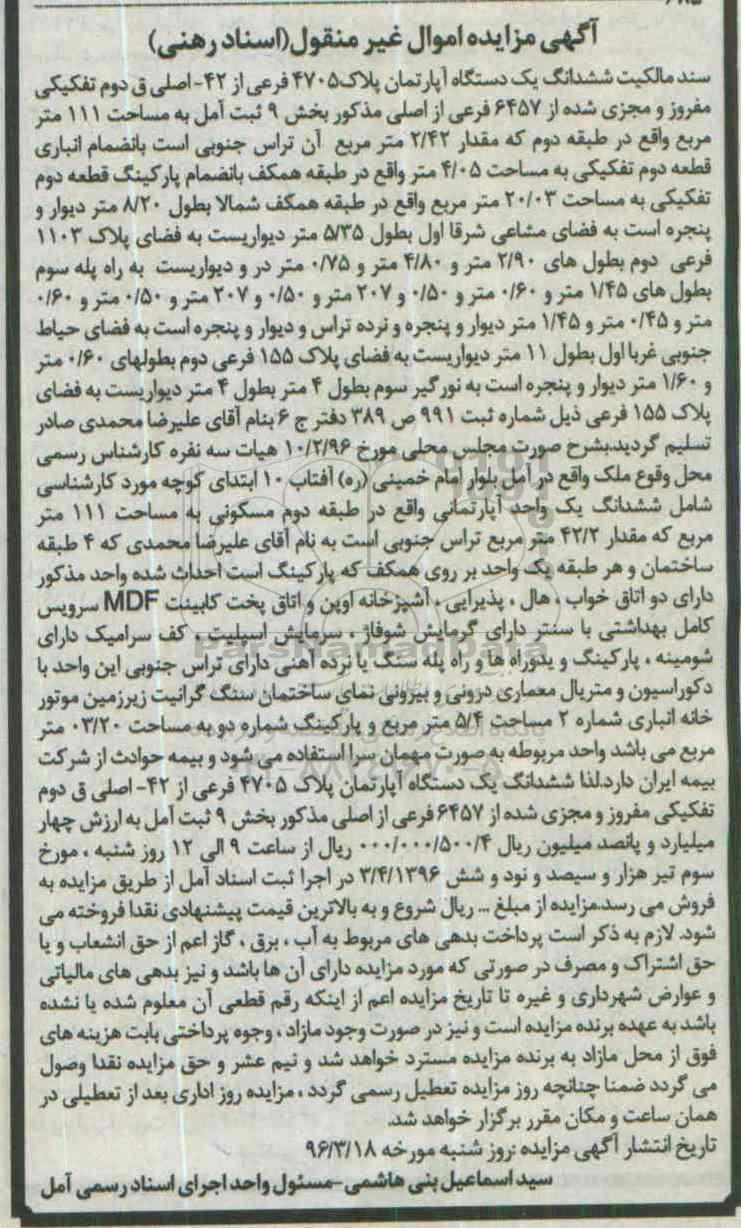 آگهی مزایده اموال غیر منقول(اسناد رهنی)
سند مالکیت ششدانگ یک دستگاه آپارتمان پلاک۴۷۰۵ فرعی از ۴۲- اصلی ق دوم تفکیکی
مفروز و مجزی شده از ۶۴۵۷ فرعی از اصلی مذکور بخش ۹ ثبت آمل به مساحت ۱۱۱ متر
مربع واقع در طبقه دوم که مقدار ۲/۴۲ متر مربع آن تراس جنوبی است بانضمام انباری
قطعه دوم تفکیکی به مساحت ۴/۰۵ متر واقع در طبقه همکف بانضمام پارکینگ قطعه دوم
تفکیکی به مساحت ۲۰/۰۳ متر مربع واقع در طبقه همکف شمالا بطول ۸/۲۰ متر دیوار و
پنجره است به فضای مشاعی شرقا اول بطول ۵/۳۵ متر دیواریست به فضای پلاک ۱۱۰۳
فرعی دوم بطول های ۲/۹۰ متر و ۴/۸۰ متر و ۰/۷۵ متر در و دیواریست به راه پله سوم
بطول های ۱/۴۵ متر و ۰/۶۰ متر و ۰/۵۰ و ۲۰۷ متر و ۰/۵۰ و ۲۰۷ متر و ۰/۵۰ متر و ۰/۶۰
متر و ۰/۴۵ متر و ۱/۴۵ متر دیوار و پنجره و نرده تراس و دیوار و پنجره است به فضای حیاط
جنوبی غربا اول بطول ۱۱ متر دیواریست به فضای پلاک ۱۵۵ فرعی دوم بطولهای ۰/۶۰ متر
و ۱/۶۰ متر دیوار و پنجره است به نورگیر سوم بطول ۴ متر بطول ۴ متر دیواریست به فضای
پلاک ۱۵۵ فرعی ذیل شماره ثبت ۹۹۱ ص ۳۸۹ دفتر ج ۶ بنام آقای علیرضا محمدی صادر
تسلیم گردید.بشرح صورت مجلس محلی مورخ ۱۰/۲/۹۶ هیات سه نفره کارشناس رسمی
محل وقوع ملک واقع در آمل بلوار امام خمینی (ره) آفتاب ۱۰ ابتدای کوچه مورد کارشناسی
شامل ششدانگ یک واحد آپارتمانی واقع در طبقه دوم مسکونی به مساحت ۱۱۱ متر
مربع که مقدار ۴۲/۲ متر مربع تراس جنوبی است به نام آقای علیرضا محمدی که ۴ طبقه
ساختمان و هر طبقه یک واحد بر روی همکف که پارکینگ است احداث شده واحد مذکور
دارای دو اتاق خواب ، هال ، پذیرایی ، آشپزخانه اوپن و اتاق پخت کابینت MDF سرویس
کامل بهداشتی با سنتر دارای گرمایش شوفاژ ، سرمایش اسپلیت ، کف سرامیک دارای
شومینه ، پارکینگ و یدوراه ها و راه پله سنگ یا نرده آهنی دارای تراس جنوبی این واحد با
دکوراسیون و متریال معماری درونی و بیرونی نمای ساختمان سنگ گرانیت زیرزمین موتور
خانه انباری شماره ۲ مساحت ۵/۴ متر مربع و پارکینگ شماره دو به مساحت ۰۳/۲۰ متر
مربع می باشد واحد مربوطه به صورت مهمان سرا استفاده می شود و بیمه حوادث از شرکت
بیمه ایران دارد.لذا ششدانگ یک دستگاه آپارتمان پلاک ۴۷۰۵ فرعی از ۴۲- اصلی ق دوم
تفکیکی مفروز و مجزی شده از ۶۴۵۷ فرعی از اصلی مذکور بخش ۹ ثبت آمل به ارزش چهار
میلیارد و پانصد میلیون ریال ۰۰۰/۰۰۰/۵۰۰/۴ ریال از ساعت ۹ الی ۱۲ روز شنبه ، مورخ
سوم تیر هزار و سیصد و نود و شش ۳/۴/۱۳۹۶ در اجرا ثبت اسناد آمل از طریق مزایده به
فروش می رسد.مزایده از مبلغ ... ریال شروع و به بالاترین قیمت پیشنهادی نقدا فروخته می
شود. لازم به ذکر است پرداخت بدهی های مربوط به آب ، برق ، گاز اعم از حق انشعاب و یا
حق اشتراک و مصرف در صورتی که مورد مزایده دارای آن ها باشد و نیز بدهی های مالیاتی
و عوارض شهرداری و غیره تا تاریخ مزایده اعم از اینکه رقم قطعی آن معلوم شده یا نشده
باشد به عهده برنده مزایده است و نیز در صورت وجود مازاد ، وجوه پرداختی بابت هزینه های
فوق از محل مازاد به برنده مزایده مسترد خواهد شد و نیم عشر و حق مزایده نقدا وصول
می گردد ضمنا چنانچه روز مزایده تعطیل رسمی گردد ، مزایده روز اداری بعد از تعطیلی در
همان ساعت و مکان مقرر برگزار خواهد شد.
تاریخ انتشار آگهی مزایده :روز شنبه مورخه ۹۶/۳/۱۸
سید اسماعیل بنی هاشمی-مسئول واحد اجرای اسناد رسمی آمل
ParsNamadData